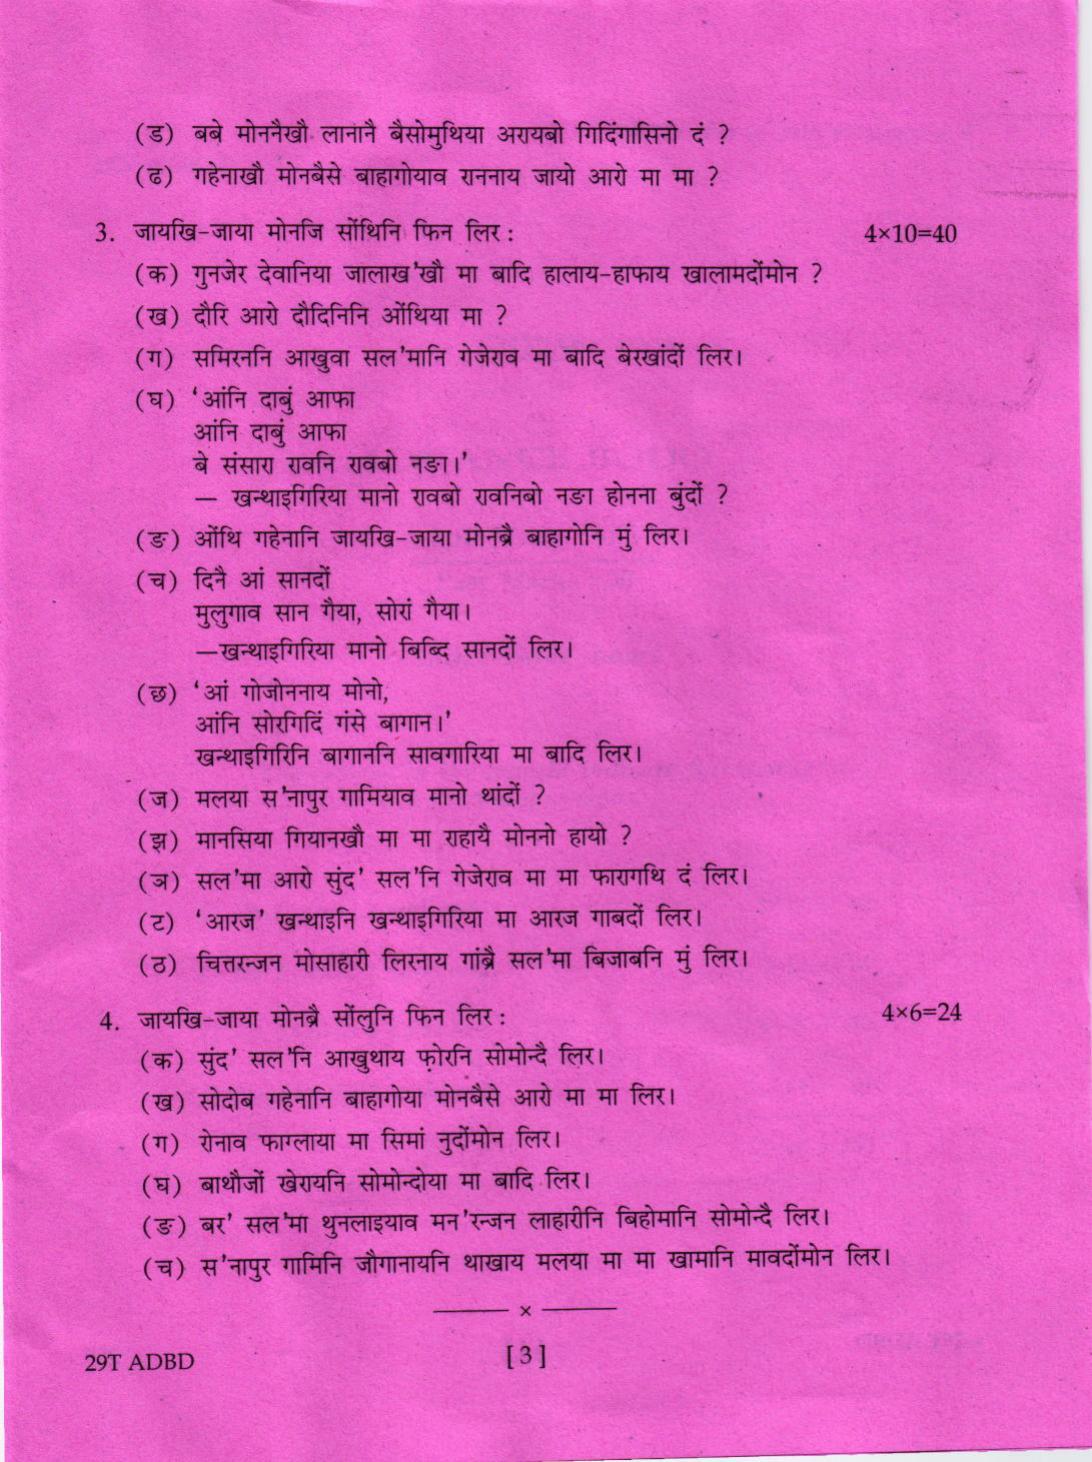 (ड) बबे मोननैखौ लानानै बैसोमुथिया अरायबो गिदिंगासिनो दं ?
(ढ) गहेनाखौ मोनबैसे बाहागोयाव राननाय जायो आरो मा मा ?
3. जायखि-जाया मोनजि सोंथिनि फिन लिर : 4×10=40
(क) गुनजेर देवानिया जालाख'खौ मा बादि हालाय-हाफाय खालामदोंमोन ?
(ख) दौरि आरो दौदिनिनि ओंथिया मा ?
(ग) समिरननि आखुवा सल'मानि गेजेराव मा बादि बेरखांदों लिर।
(घ) 'आंनि दाबुं आफा
आंनि दाबुं आफा
बे संसारा रावनि रावबो नङा।'
— खन्थाइगिरिया मानो रावबो रावनिबो नङा होनना बुंदों ?
(ङ) ओंथि गहेनानि जायखि-जाया मोनब्रै बाहागोनि मुं लिर।
(च) दिनै आं सानदों
मुलुगाव सान गैया, सोरां गैया।
—खन्थाइगिरिया मानो बिब्दि सानदों लिर।
(छ) 'आं गोजोननाय मोनो,
आंनि सोरगिदिं गंसे बागान।'
खन्थाइगिरिनि बागाननि सावगारिया मा बादि लिर।
(ज) मलया स'नापुर गामियाव मानो थांदों ?
(झ) मानसिया गियानखौ मा मा राहायै मोननो हायो ?
(ञ) सल'मा आरो सुंद' सल'नि गेजेराव मा मा फारागथि दं लिर।
(ट) 'आरज' खन्थाइनि खन्थाइगिरिया मा आरज गाबदों लिर।
(ठ) चित्तरन्जन मोसाहारी लिरनाय गांब्रै सल'मा बिजाबनि मुं लिर।
4. जायखि-जाया मोनब्रै सोंलुनि फिन लिर : 4×6=24
(क) सुंद' सल'नि आखुथाय फ़ोरनि सोमोन्दै लिर।
(ख) सोदोब गहेनानि बाहागोया मोनबैसे आरो मा मा लिर।
(ग) रोनाव फाग्लाया मा सिमां नुदोंमोन लिर।
(घ) बाथौजों खेरायनि सोमोन्दोया मा बादि लिर।
(ङ) बर' सल'मा थुनलाइयाव मन'रन्जन लाहारीनि बिहोमानि सोमोन्दै लिर।
(च) स'नापुर गामिनि जौगानायनि थाखाय मलया मा मा खामानि मावदोंमोन लिर।
——— × ———
29T ADBD [3]